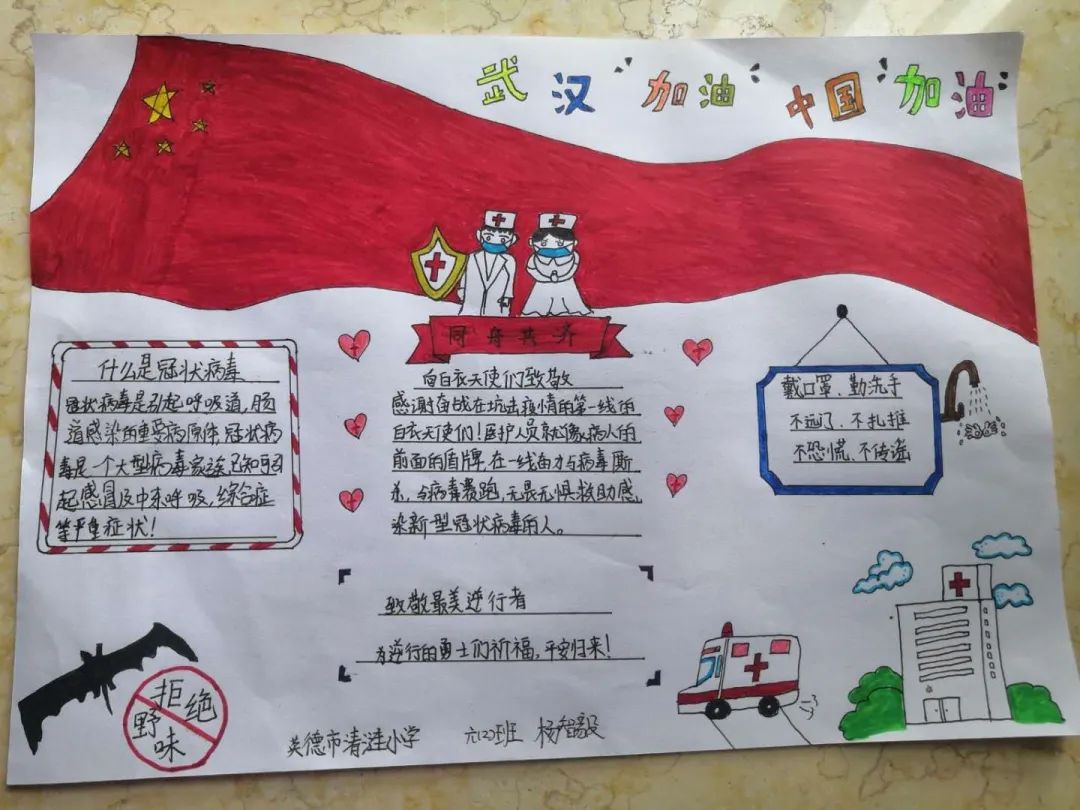 武汉加油 中国加油
同舟共济
什么是冠状病毒
冠状病毒是引起呼吸道,肠
道感染的重要病原体,冠状病
毒是一个大型病毒家族,已知可引
起感冒及中东呼吸,综合症
等严重症状!
向白衣天使们致敬
感谢奋战在抗击疫情的第一线的
白衣天使们!医护人员就像病人的
前面的盾牌,在一线奋力与病毒厮
杀,与病毒赛跑,无畏无惧救助感
染新型冠状病毒的人。
戴口罩、勤洗手
不远门、不扎推
不恐慌、不传谣
致敬最美逆行者
为逆行的勇士们祈福,平安归来!
拒绝
野味
英德市清洼小学 六(2)班 杨智毅